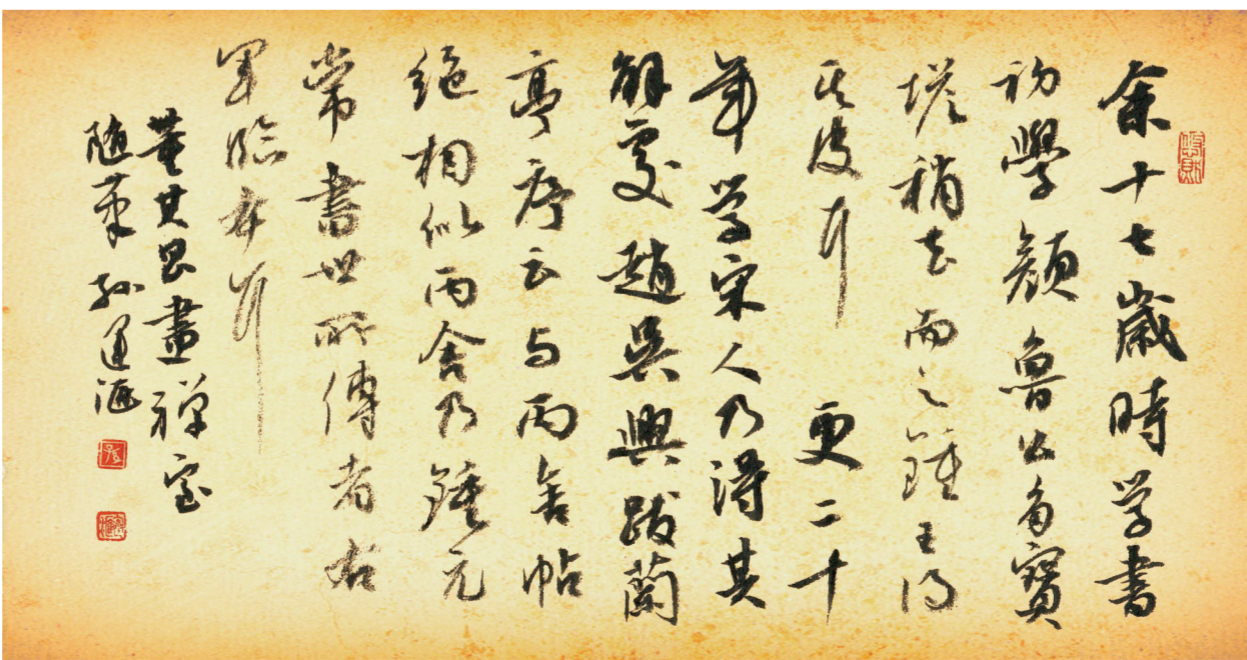 余十七歲時学書
初學顔魯公多寶
塔稍去而之鍾王得
其皮耳更二十
年学宋人乃得其
解處趙吳興跋蘭
亭序云与丙舍帖
絶相似丙舍乃鍾元
常書世所傳者右
軍臨本耳
董其昌畫禅室
随筆孙運